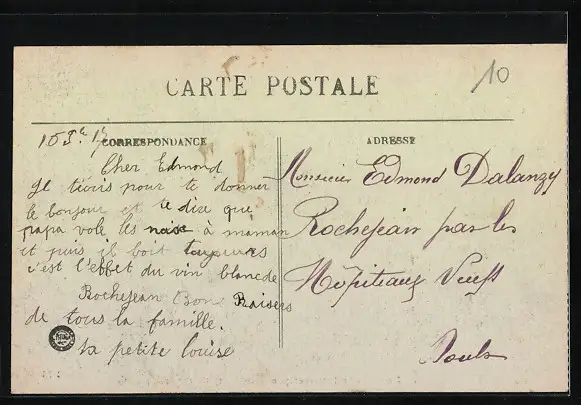 10
CARTE POSTALE
CORRESPONDANCE
ADRESSE
Cher Edmond
Je t'écris pour te donner
le bonjour et te dire que
papa vole les noix à maman
et puis il boit toujours
c'est l'effet du vin blanc de
Rochejean Bons Baisers
de tous la famille.
ta petite louise
Monsieur Edmond Dalanzy
Rochejean par les
Hôpitaux Neufs
Doubs